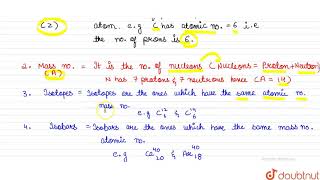 (Z) atom. e.g 'C' has atomic no. = 6 i.e
the no. of prons is 6.
2. Mass no. = It is the no. of nucleons (Nucleons = Proton + Neutron)
(A) N has 7 protons & 7 neutrons hence (A = 14)
3. Isotopes = Isotopes are the ones which have the same atomic no.
mass no. e.g C 12 6 & C 14 6
4. Isobars = Isobars are the ones which have the same mass no.
atomic no.
e.g Ca 40 20 & Ar 40 18
doubtnut